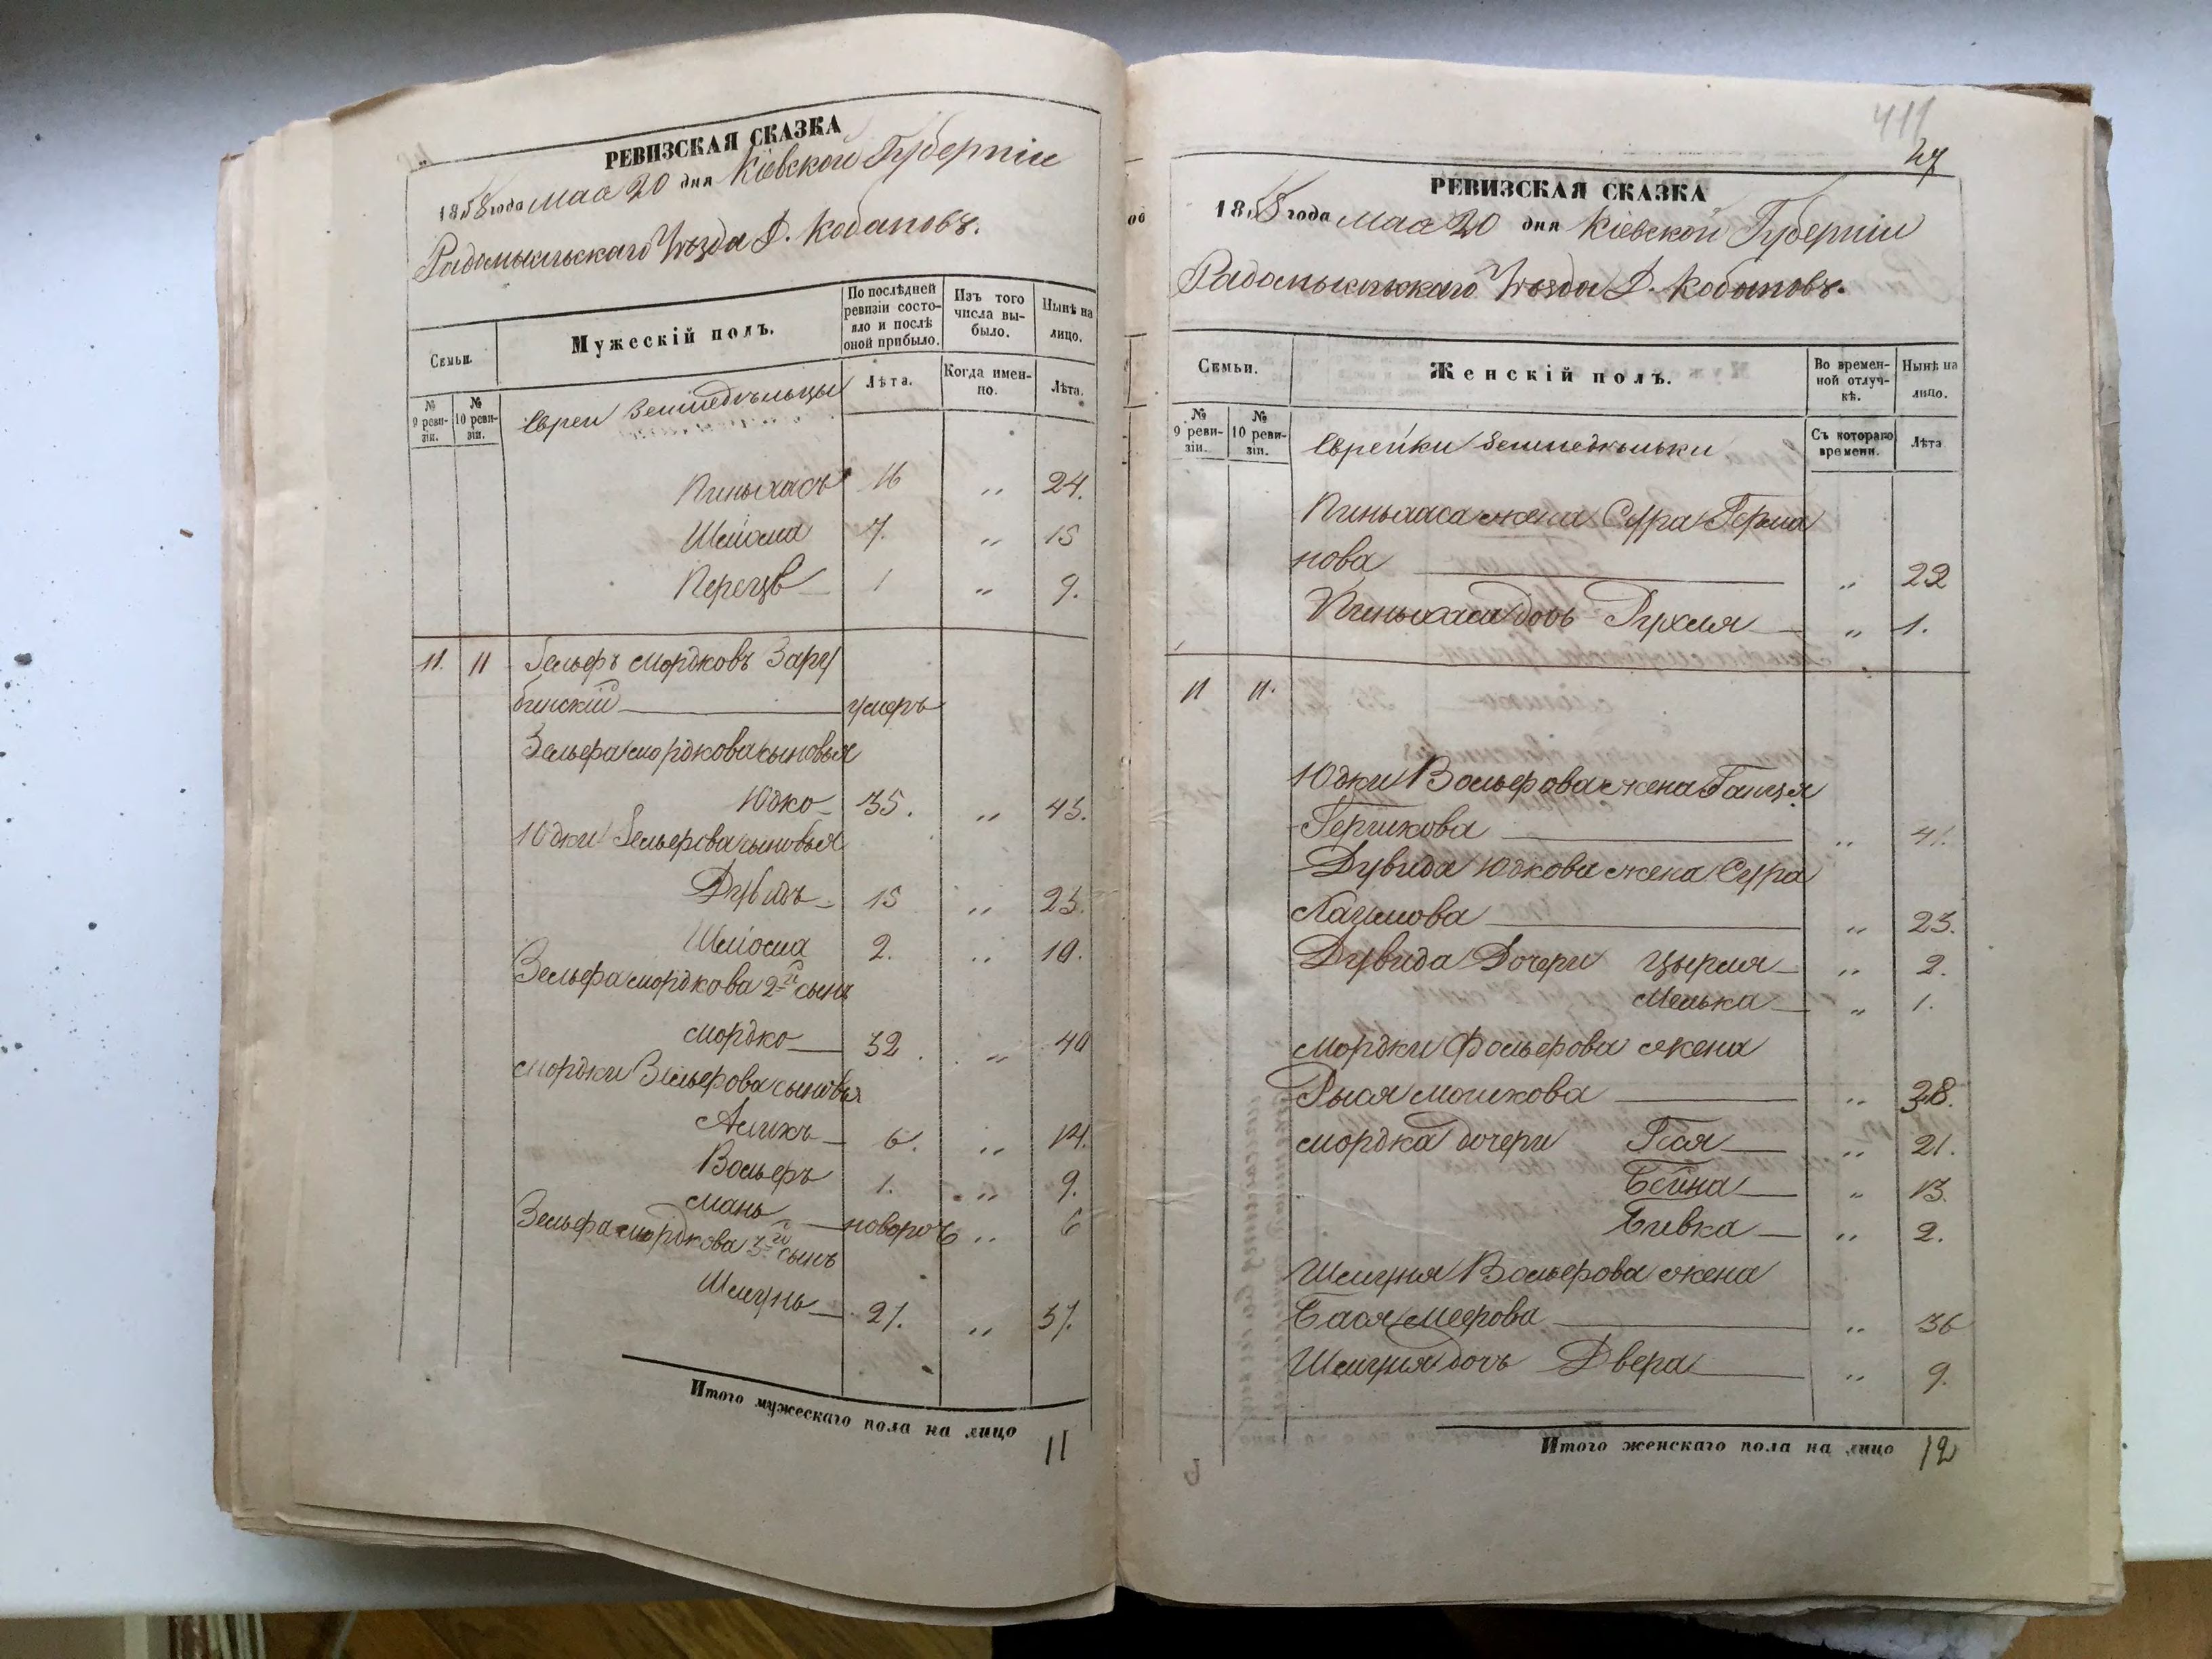 РЕВИЗСКАЯ СКАЗКА
1858 года мая 20 дня Кіевской Губерніи
Радомысльскаго Уѣзда Д. Кобановъ.
Семьи.
Мужескій полъ.
По послѣдней ревизіи состояло и послѣ оной прибыло.
Изъ того числа выбыло.
Нынѣ на лицо.
№ 9 ревизіи.
№ 10 ревизіи.
Евреи Земледѣльцы
Лѣта.
Когда именно.
Лѣта.
Пиньхасъ 16 „ 24.
Шлиома 7. „ 15
Перецъ 1 „ 9.
11. 11 Вельфъ Мордковъ Зару
бинский умеръ
Вельфа Мордкова сыновья
Юдко 35. „ 43.
Юдки Вельфова сыновья
Дувидъ 15 „ 23.
Шлиома 2. „ 10.
Вельфа Мордкова 2й сынъ
Мордко 32. „ 40
Мордки Вельфова сыновья
6. „ 14.
Вольфъ 1. „ 9.
Мань новорож „ 6
Вельфа Мордкова 3й сынъ
Шмунь 21. „ 37.
Итого мужескаго пола на лицо 11
411
РЕВИЗСКАЯ СКАЗКА
1858 года мая 20 дня Кіевской Губерніи
Радомысльскаго Уѣзда Д. Кобановъ.
Семьи.
Женскій полъ.
Во временной отлучкѣ.
Нынѣ на лицо.
№ 9 ревизіи.
№ 10 ревизіи.
Еврейки Земледѣльки
Съ котораго времени.
Лѣта
Пиньхаса жена Сура Герша
нова „ 22
Пиньхаса дочь Рухля „ 1.
11 11.
Юдки Вольфова жена Ганця
Гершкова „ 41.
Дувида Юдкова жена Сура
„ 23.
Дувида Дочери Цырля „ 2.
Мелька „ 1.
Мордки Вольфова жена
Рыся Мошкова „ 38.
Мордка дочери Гися „ 21.
Бейна „ 13.
„ 2.
Шмуня Вольфова жена
Бася Меерова „ 36
Шмуня дочь Двера „ 9.
Итого женскаго пола на лицо 12